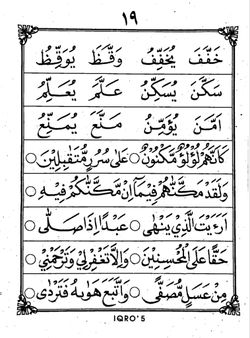 ١٩
خَفَّفَ يُخَفِّفُ وَقَّظَ يُوَقِّظُ
سَكَّنَ يُسَكِّنُ عَلَّمَ يُعَلِّمُ
اَمَّنَ يُؤَمِّنُ مَنَّعَ يُمَنِّعُ
كَاَنَّهُمْ لُؤْلُؤٌ مَكْنُوْنٌ ○ عَلٰى سُرُرٍ مُّتَقٰبِلِيْنَ ○
وَلَقَدْ مَكَّنّٰهُمْ فِيْمَآ اِنْ مَّكَّنّٰكُمْ فِيْهِ ○
اَرَءَيْتَ الَّذِيْ يَنْهٰى ○ عَبْدًا اِذَا صَلّٰى ○
حَقًّا عَلَى الْمُحْسِنِيْنَ ○ وَاِلَّا تَغْفِرْلِيْ وَتَرْحَمْنِيْ ○
مِنْ عَسَلٍ مُّصَفًّى ○ وَاتَّبَعَ هَوٰىهُ فَتَرْدٰى ○
IQRO'5